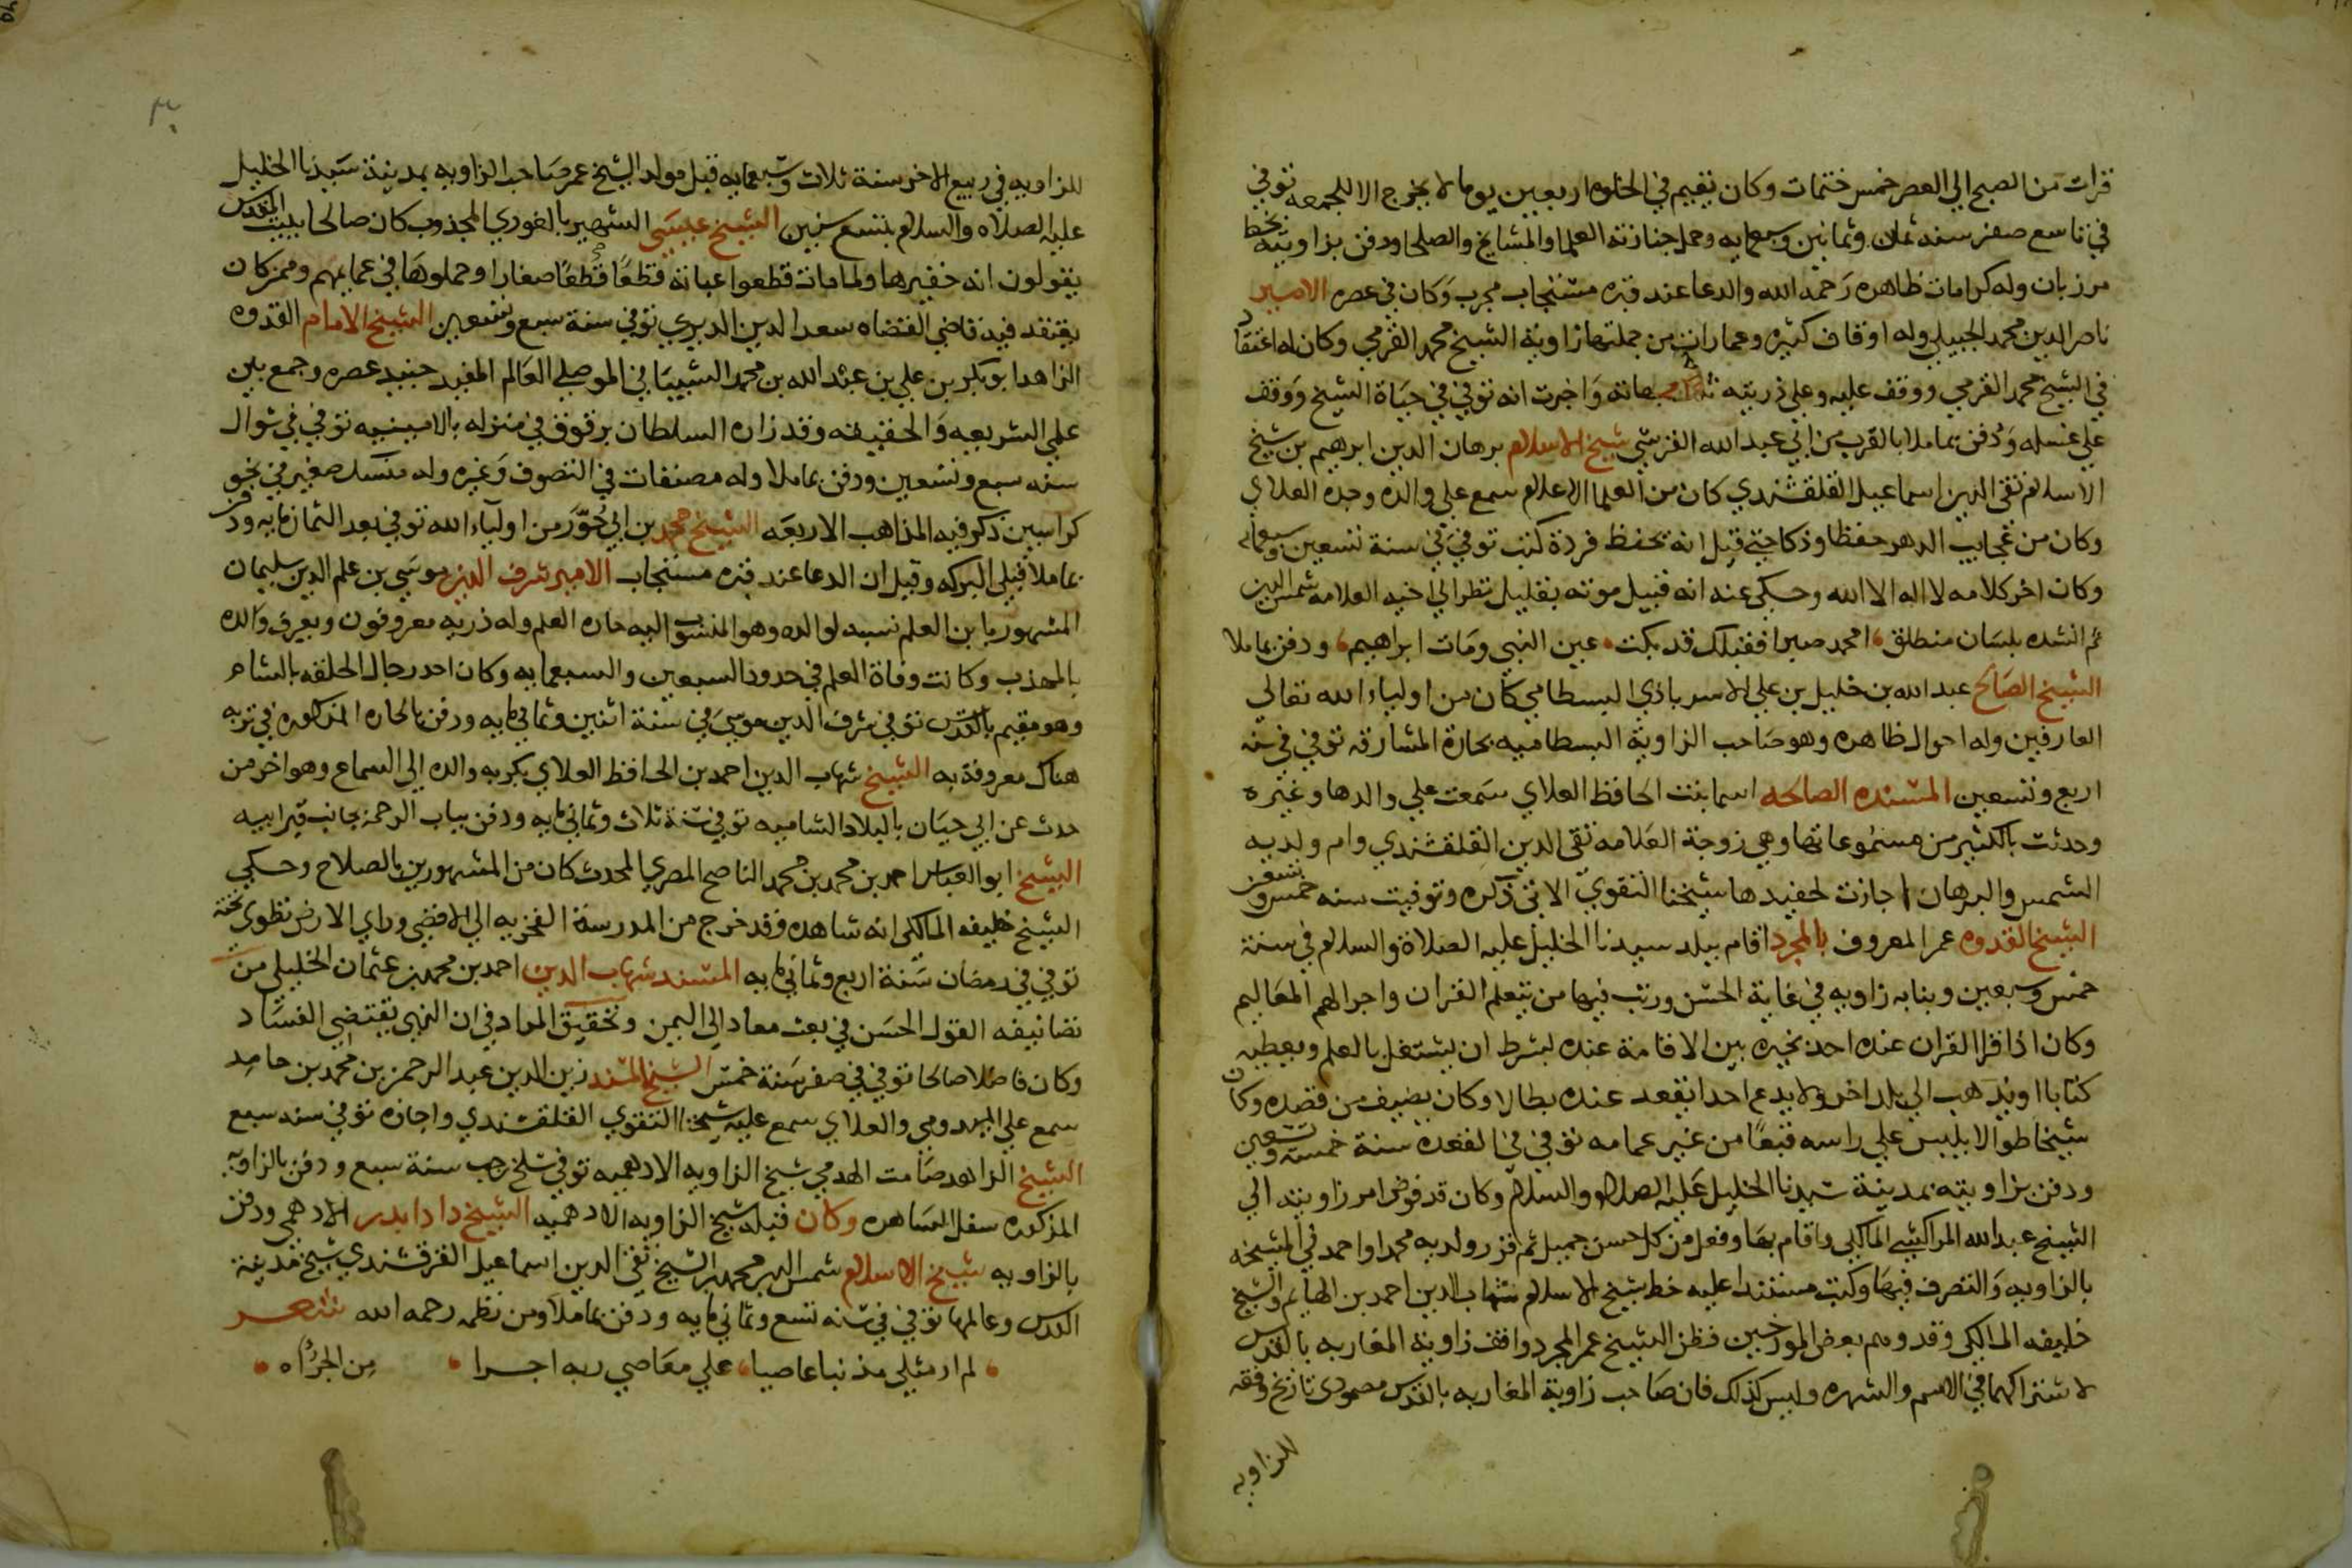 قرات من الصبح الي العصر خمس ختمات وكان يقيم في الخلوه اربعين يوما لا يخرج الا للجمعه توفي
في تاسع صفر سنه ثمان وثمانين وسبعمايه وحمل جنازته العلما والمشايخ والصلحا ودفن بزاويته بخط
مرزبان وله كرامات ظاهره رحمه الله والدعا عند قبره مستجاب مجرب وكان في عصره الامير
ناصر الدين محمد الجبيلي وله اوقاف كثيره وعمارات من جملتها زاوية الشيخ محمد القرمي وكان له اعتقاد
في الشيخ محمد القرمي ووقف عليه وعلي ذريته واخبرت انه توفي في حياة الشيخ ووقف
علي غسله ودفن بماملا بالقرب من ابي عبد الله القرشي شيخ الاسلام برهان الدين ابرهيم بن شيخ
الاسلام تقي الدين اسماعيل القلقشندي كان من العلما الاعلام سمع علي والده وجده العلاي
وكان من عجايب الدهر حفظا وذكا حتي قيل انه يحفظ فردة كتب توفي في سنة تسعين وسبعمايه
وكان اخر كلامه لا اله الا الله وحكي عنه انه قبيل موته بقليل نظر الي اخيه العلامه شمس الدين
ثم انشده بلسان منطلق، امحمد صبرا فقبلك قد بكت، عين النبي ومات ابراهيم، ودفن بماملا
الشيخ الصالح عبد الله بن خليل بن علي الاسرباذي البسطامي كان من اولياء الله تعالي
العارفين وله احوال ظاهره وهو صاحب الزاوية البسطاميه بحارة المشارقه توفي في سنه
اربع وتسعين المسنده الصالحه اسما بنت الحافظ العلاي سمعت علي والدها وغيره
وحدثت بالكثير من مسموعاتها وهي زوجة العلامه تقي الدين القلقشندي وام ولديه
الشمس والبرهان اجازت لحفيدها شيخنا التقوي الاتي ذكره وتوفيت سنه خمس وتسعين
الشيخ القدوه عمر المعروف بالمجرد اقام ببلد سيدنا الخليل عليه الصلاة والسلام في سنة
خمس وسبعين وبنا به زاويه في غاية الحسن ورتب فيها من يتعلم القران واجرا لهم المعاليم
وكان اذا قرا القران عنده احد يخيره بين الاقامة عنده بشرط ان يشتغل بالعلم ويعطيه
كتابا او يذهب الي بلد اخر ولا يدع احدا يقعد عنده بطالا وكان يضيف من قصده وكان
شيخا طوالا يلبس علي راسه قبعا من غير عمامه توفي في القعده سنة خمس وتسعين
ودفن بزاويته بمدينة سيدنا الخليل عليه الصلاه والسلام وكان قد فوض امر زاويته الي
الشيخ عبد الله المراكشي المالكي واقام بها وفعل من كل حسن جميل ثم قرر ولديه محمدا واحمد في المشيخه
بالزاويه والتصرف فيها وكتب مستندا عليه خط شيخ الاسلام شهاب الدين احمد بن الهايم والشيخ
خليفه المالكي وقد وهم بعض المورخين فظن الشيخ عمر المجرد واقف زاوية المغاربه بالقدس
لاشتراكهما في الاسم والشهره وليس كذلك فان صاحب زاوية المغاربه بالقدس مصمودي تاريخ وقفه
للزاويه
للزاويه في ربيع الاخر سنة ثلاث وسبعمايه قبل مولد الشيخ عمر صاحب الزاويه بمدينة سيدنا الخليل
عليه الصلاه والسلام بتسع سنين الشيخ عيسي الشهير بالغوري المجذوب كان صالحا ببيت المقدس
يقولون انه خفيرها ولما مات قطعوا عباته قطعا قطعا صغارا وحملوها في عمايمهم وممن كان
يعتقد فيه قاضي القضاه سعد الدين الديري توفي في سنة سبع وتسعين الشيخ الامام القدوه
الزاهد ابو بكر بن علي بن عبد الله بن محمد الشيباني الموصلي العالم المفيد جنيد عصره وجمع بين
علمي الشريعه والحقيقه وقد زاره السلطان برقوق في منزله بالامينيه توفي في شوال
سنه سبع وتسعين ودفن بماملا وله مصنفات في التصوف وغيره وله منسك صغير في نحو
كراسين ذكر فيه المذاهب الاربعه الشيخ محمد بن ابي حور من اولياء الله توفي بعد الثمانمايه ودفن
بماملا قبلي البركه وقيل ان الدعا عند قبره مستجاب الامير شرف الدين موسي بن علم الدين سليمان
المشهور بابن العلم نسبه لوالده وهو المنسوب اليه حاره العلم وله ذريه معروفون ويعرف والده
بالمهذب وكانت وفاة العلم في حدود السبعين والسبعمايه وكان احد رجال الحلقه بالشام
وهو مقيم بالقدس توفي شرف الدين موسي في سنة اثنين وثماني مايه ودفن بالحاره المذكوره في تربه
هناك معروفة به الشيخ شهاب الدين احمد بن الحافظ العلاي بكر به والده الي السماع وهو اخر من
حدث عن ابي حيان بالبلاد الشاميه توفي سنة ثلاث وثماني مايه ودفن بباب الرحمة بجانب قبر ابيه
الشيخ ابو العباس احمد بن محمد بن محمد الناصح المصري المحدث كان من المشهورين بالصلاح وحكي
الشيخ خليفه المالكي انه شاهده وقد خرج من المدرسة الفخريه الي الاقصي وراي الارض تطوي تحته
توفي في رمضان سنة اربع وثماني مايه المسند شهاب الدين احمد بن محمد بن عثمان الخليلي من
تصانيفه القول الحسن في بعث معاد الي اليمن وتحقيق المراد في ان النهي يقتضي الفساد
وكان فاضلا صالحا توفي في صفر سنة خمس الشيخ المسند زين الدين عبد الرحمن بن محمد بن حامد
سمع علي الميدومي والعلاي سمع عليه شيخنا التقوي القلقشندي واجازه توفي سنه سبع
الشيخ الزاهد صامت الهدمي شيخ الزاويه الادهميه توفي سلخ رجب سنة سبع ودفن بالزاويه
المذكوره سفل الساهره وكان قبله شيخ الزاويه الادهميه الشيخ دادا بدر الادهمي ودفن
بالزاويه شيخ الاسلام شمس الدين محمد بن الشيخ تقي الدين اسماعيل القرقشندي شيخ مدينة
القدس وعالمها توفي في سنه تسع وثماني مايه ودفن بماملا ومن نظمه رحمه الله شعر
لم ار مثلي مذنبا عاصيا، علي معاصي ربه اجرا